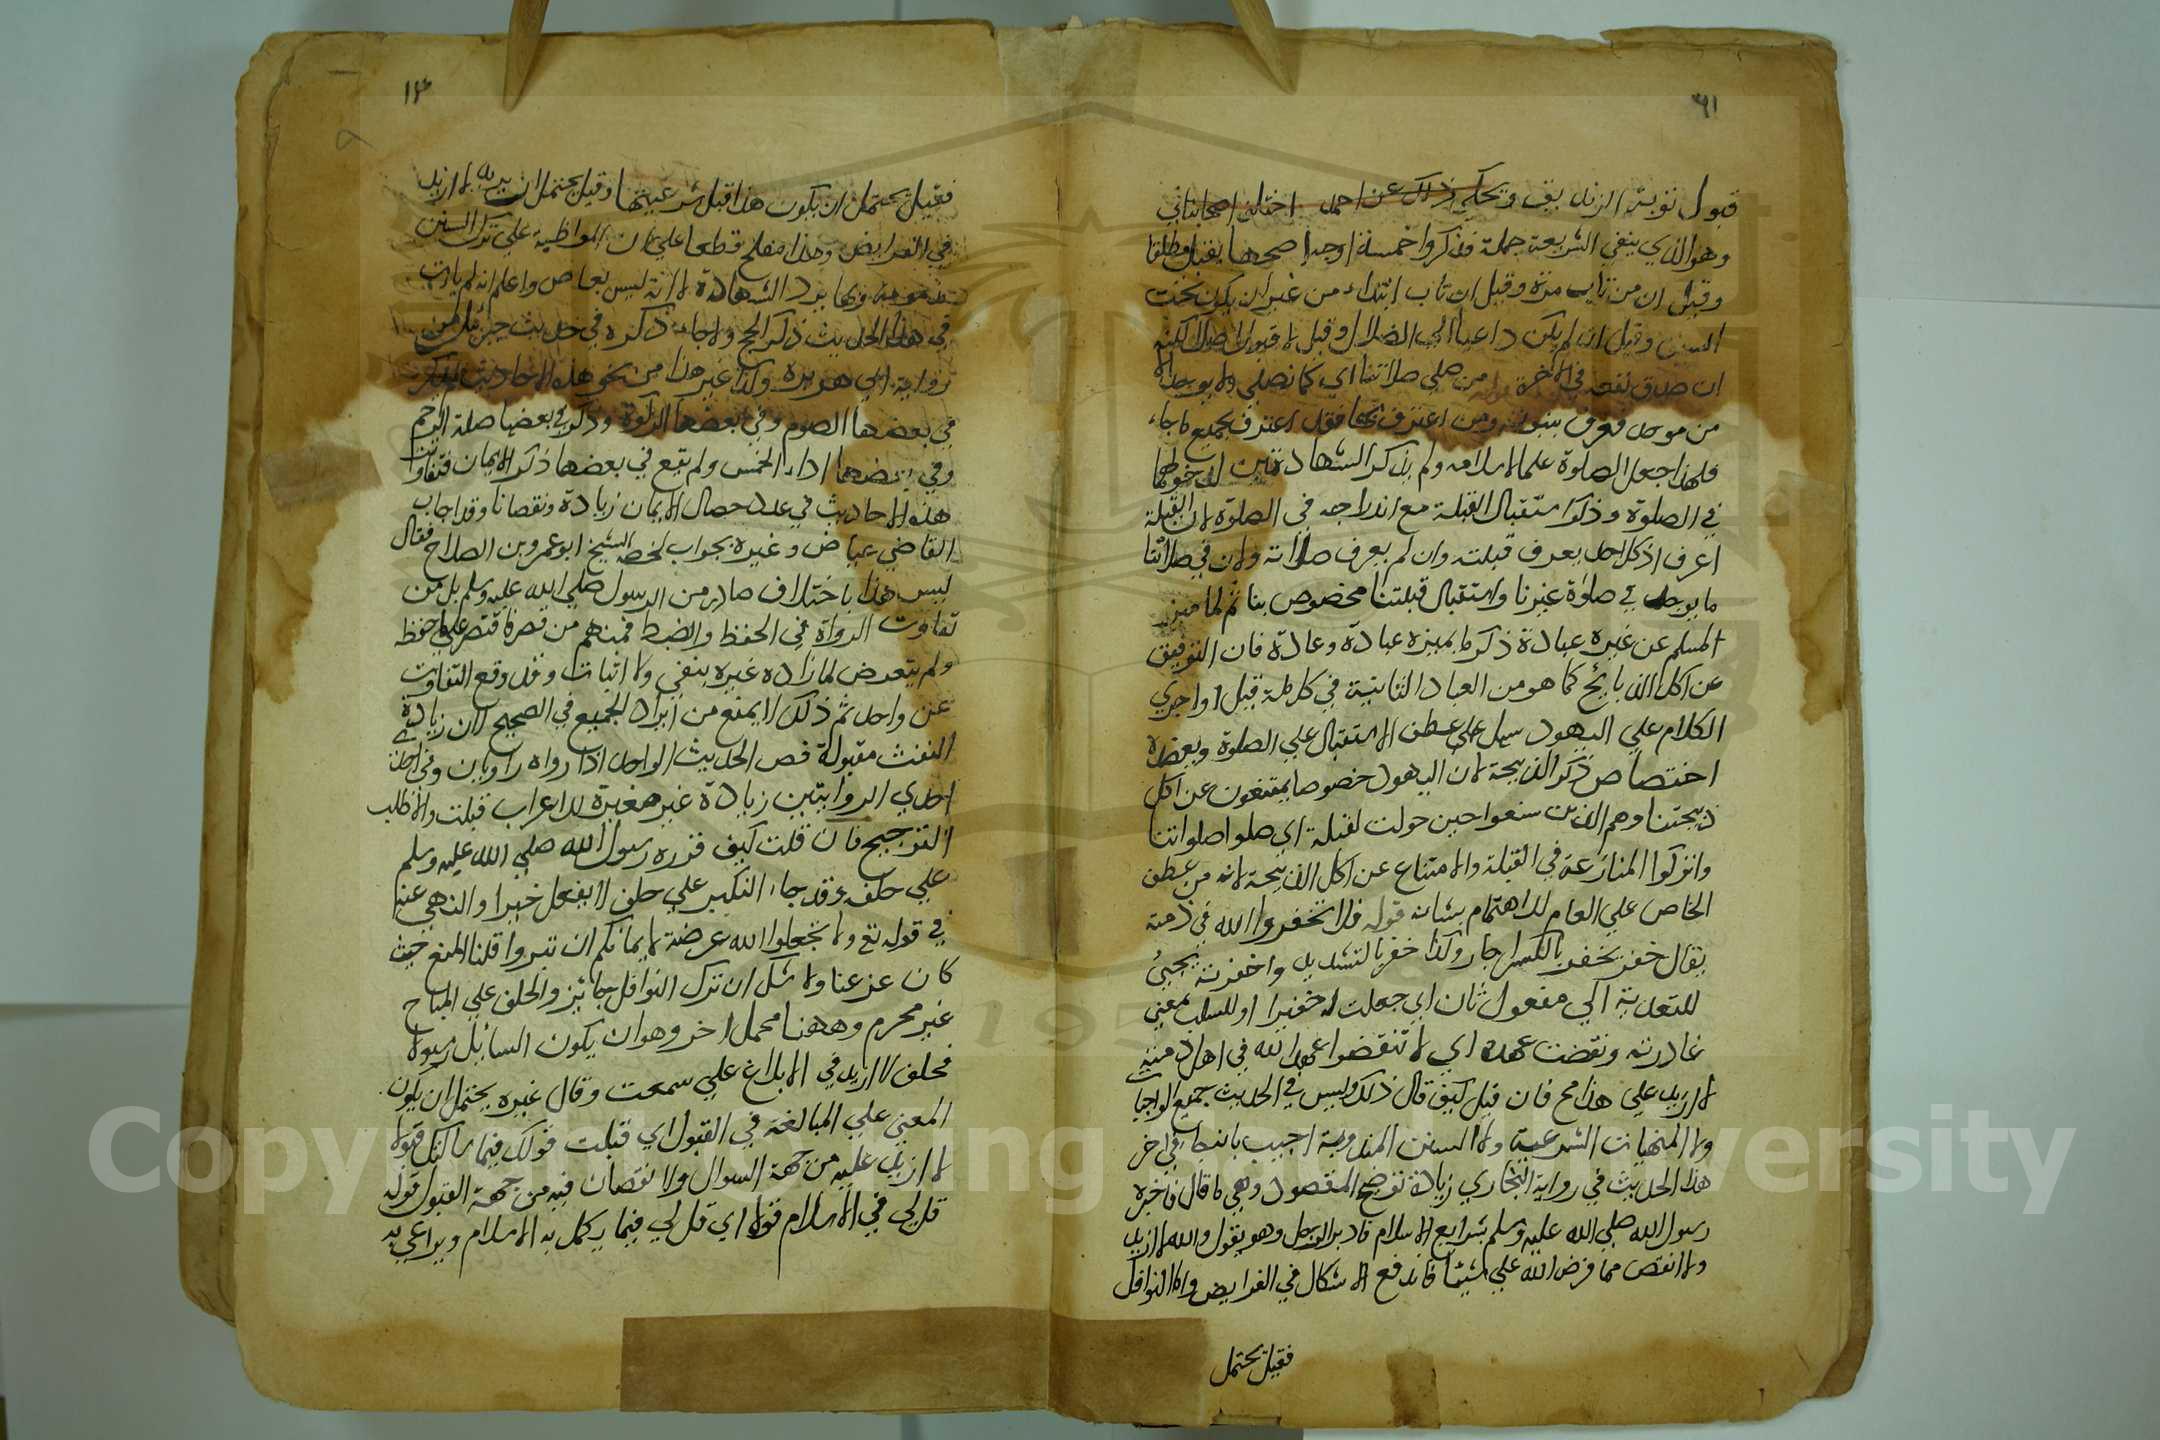 ٣١
قبول توبة الزنديق وتحكي ذلك عن احمد اختلف اصحابنا في
وهو الذي ينفي الشريعة جملة فذكروا خمسة اوجه اصحها يقبل مطلقا
وقيل ان من تاب مرة وقيل ان تاب ابتداء من غير ان يكون تحت
السيف وقيل ان لم يكن داعيا الي الضلال وقيل لا قبول اصلا لكنه
ان صدق نفعه في الاخرة من صلي صلاتنا اي كما نصلي ولا يوجد الا
من موحد معترف بنبوته ومن اعترف بها فقد اعترف بجميع ما جاء
فلهذا جعل الصلوة علما لاسلامه ولم يذكر الشهادتين لدخولهما
في الصلوة وذكر استقبال القبلة مع اندراجه في الصلوة لان القبلة
اعرف اذ كل احد يعرف قبلته وان لم يعرف صلاته ولان في صلاتنا
ما يوجد في صلوة غيرنا واستقبال قبلتنا مخصوص بنا ثم لما ميز
المسلم عن غيره عبادة ذكر ما يميزه عبادة وعادة فان التوقف
عن اكل الذبائح كما هو من العبادات الثابتة في كل ملة قيل اواجري
الكلام علي اليهود سهل علي عطف الاستقبال علي الصلوة وبعضده
اختصاص ذكر الذبيحة لان اليهود خصوصا يمتنعون عن اكل
ذبيحتنا وهم الذين سنعوا حين حولت لقبلة اي صلوا صلواتنا
واتركوا المنازعة في القبلة والامتناع عن اكل الذبيحة لانه من عطف
الخاص علي العام للاهتمام بشانه قوله فلا تخفروا الله في ذمته
يقال خفر يخفر بالكسر اجار وكذا خفر بالتشديد واخفرته يجيئ
للتعدية الي مفعول ثان اي جعلت له خفيرا او للسلب بمعني
غادرته ونقضت عهده اي لا تنقضوا عهد الله في اهل ذمته
لا ازيد علي هذا مح فان قيل كيف قال ذلك وليس في الحديث جميع الواجبات
ولا المنهيات الشرعية ولا السنن المندوبة اجيب بانه جاء في اخر
هذا الحديث في رواية البخاري زيادة توضح المقصود وهي ما قال فاخبره
رسول الله صلي الله عليه وسلم بشرايع الاسلام فادبر الرجل وهو يقول والله لا ازيد
ولا انقص مما فرض الله علي شيئا فاندفع الاشكال في الفرايض واما النوافل
فقيل يحتمل
١٣
فقيل يحتمل ان يكون هذا قبل شرعيتها وقيل يحتمل ان يريد لا ازيد
في الفرايض وهذا مفلح قطعا علي ان المواظبة علي ترك السنن
مذمومة وبها يرد الشهادة لا انه ليس بعاص واعلم انه لم يات
في هذا الحديث ذكر الحج ولا جاء ذكره في حديث جبرئيل من
رواية ابي هريرة وكذا غير هذا من نحو هذه الاحاديث لم يذكر
في بعضها الصوم وفي بعضها الزكوة وذكر في بعضها صلة الرحم
وفي بعضها اداء الخمس ولم يقع في بعضها ذكر الايمان فتفاوت
هذه الاحاديث في عدد خصال الايمان زيادة ونقصانا وقد اجاب
القاضي عياض وغيره بجواب لخصه الشيخ ابو عمرو بن الصلاح فقال
ليس هذا باختلاف صادر من الرسول صلي الله عليه وسلم بل من
تفاوت الرواة في الحفظ والضبط فمنهم من قصر فاقتصر علي ما حفظه
ولم يتعرض لما زاده غيره بنفي ولا اثبات وقد وقع التفاوت
عن واحد ثم ذلك لا يمنع من ايراد الجميع في الصحيح لان زيادة
الثقة مقبولة فص الحديث الواحد اذا رواه راويان وفي احد
احدي الروايتين زيادة غير مغيرة للاعراب قبلت والا طلب
الترجيح فان قلت كيف قرره رسول الله صلي الله عليه وسلم
علي حلفه وقد جاء النكير علي حلف لا يفعل خيرا والنهي عنه
في قوله تع ولا تجعلوا الله عرضة لايمانكم ان تبروا قلنا المنع حيث
كان عزعنا ولا شك ان ترك النوافل جائز والحلف علي المباح
غير محرم وههنا محمل اخر وهو ان يكون السائل رسولا
فحلف لا ازيد في الابلاغ علي سمعت وقال غيره يحتمل ان يكون
المعني علي المبالغة في القبول اي قبلت قولك فيما سالتك قبولا
لا ازيد عليه من جهة السوال ولا نقصان فيه من جهة القبول قوله
قل لي في الاسلام قولا اي قل لي فيما يكمل به الاسلام ويراعي به
Copyright © King Saud University